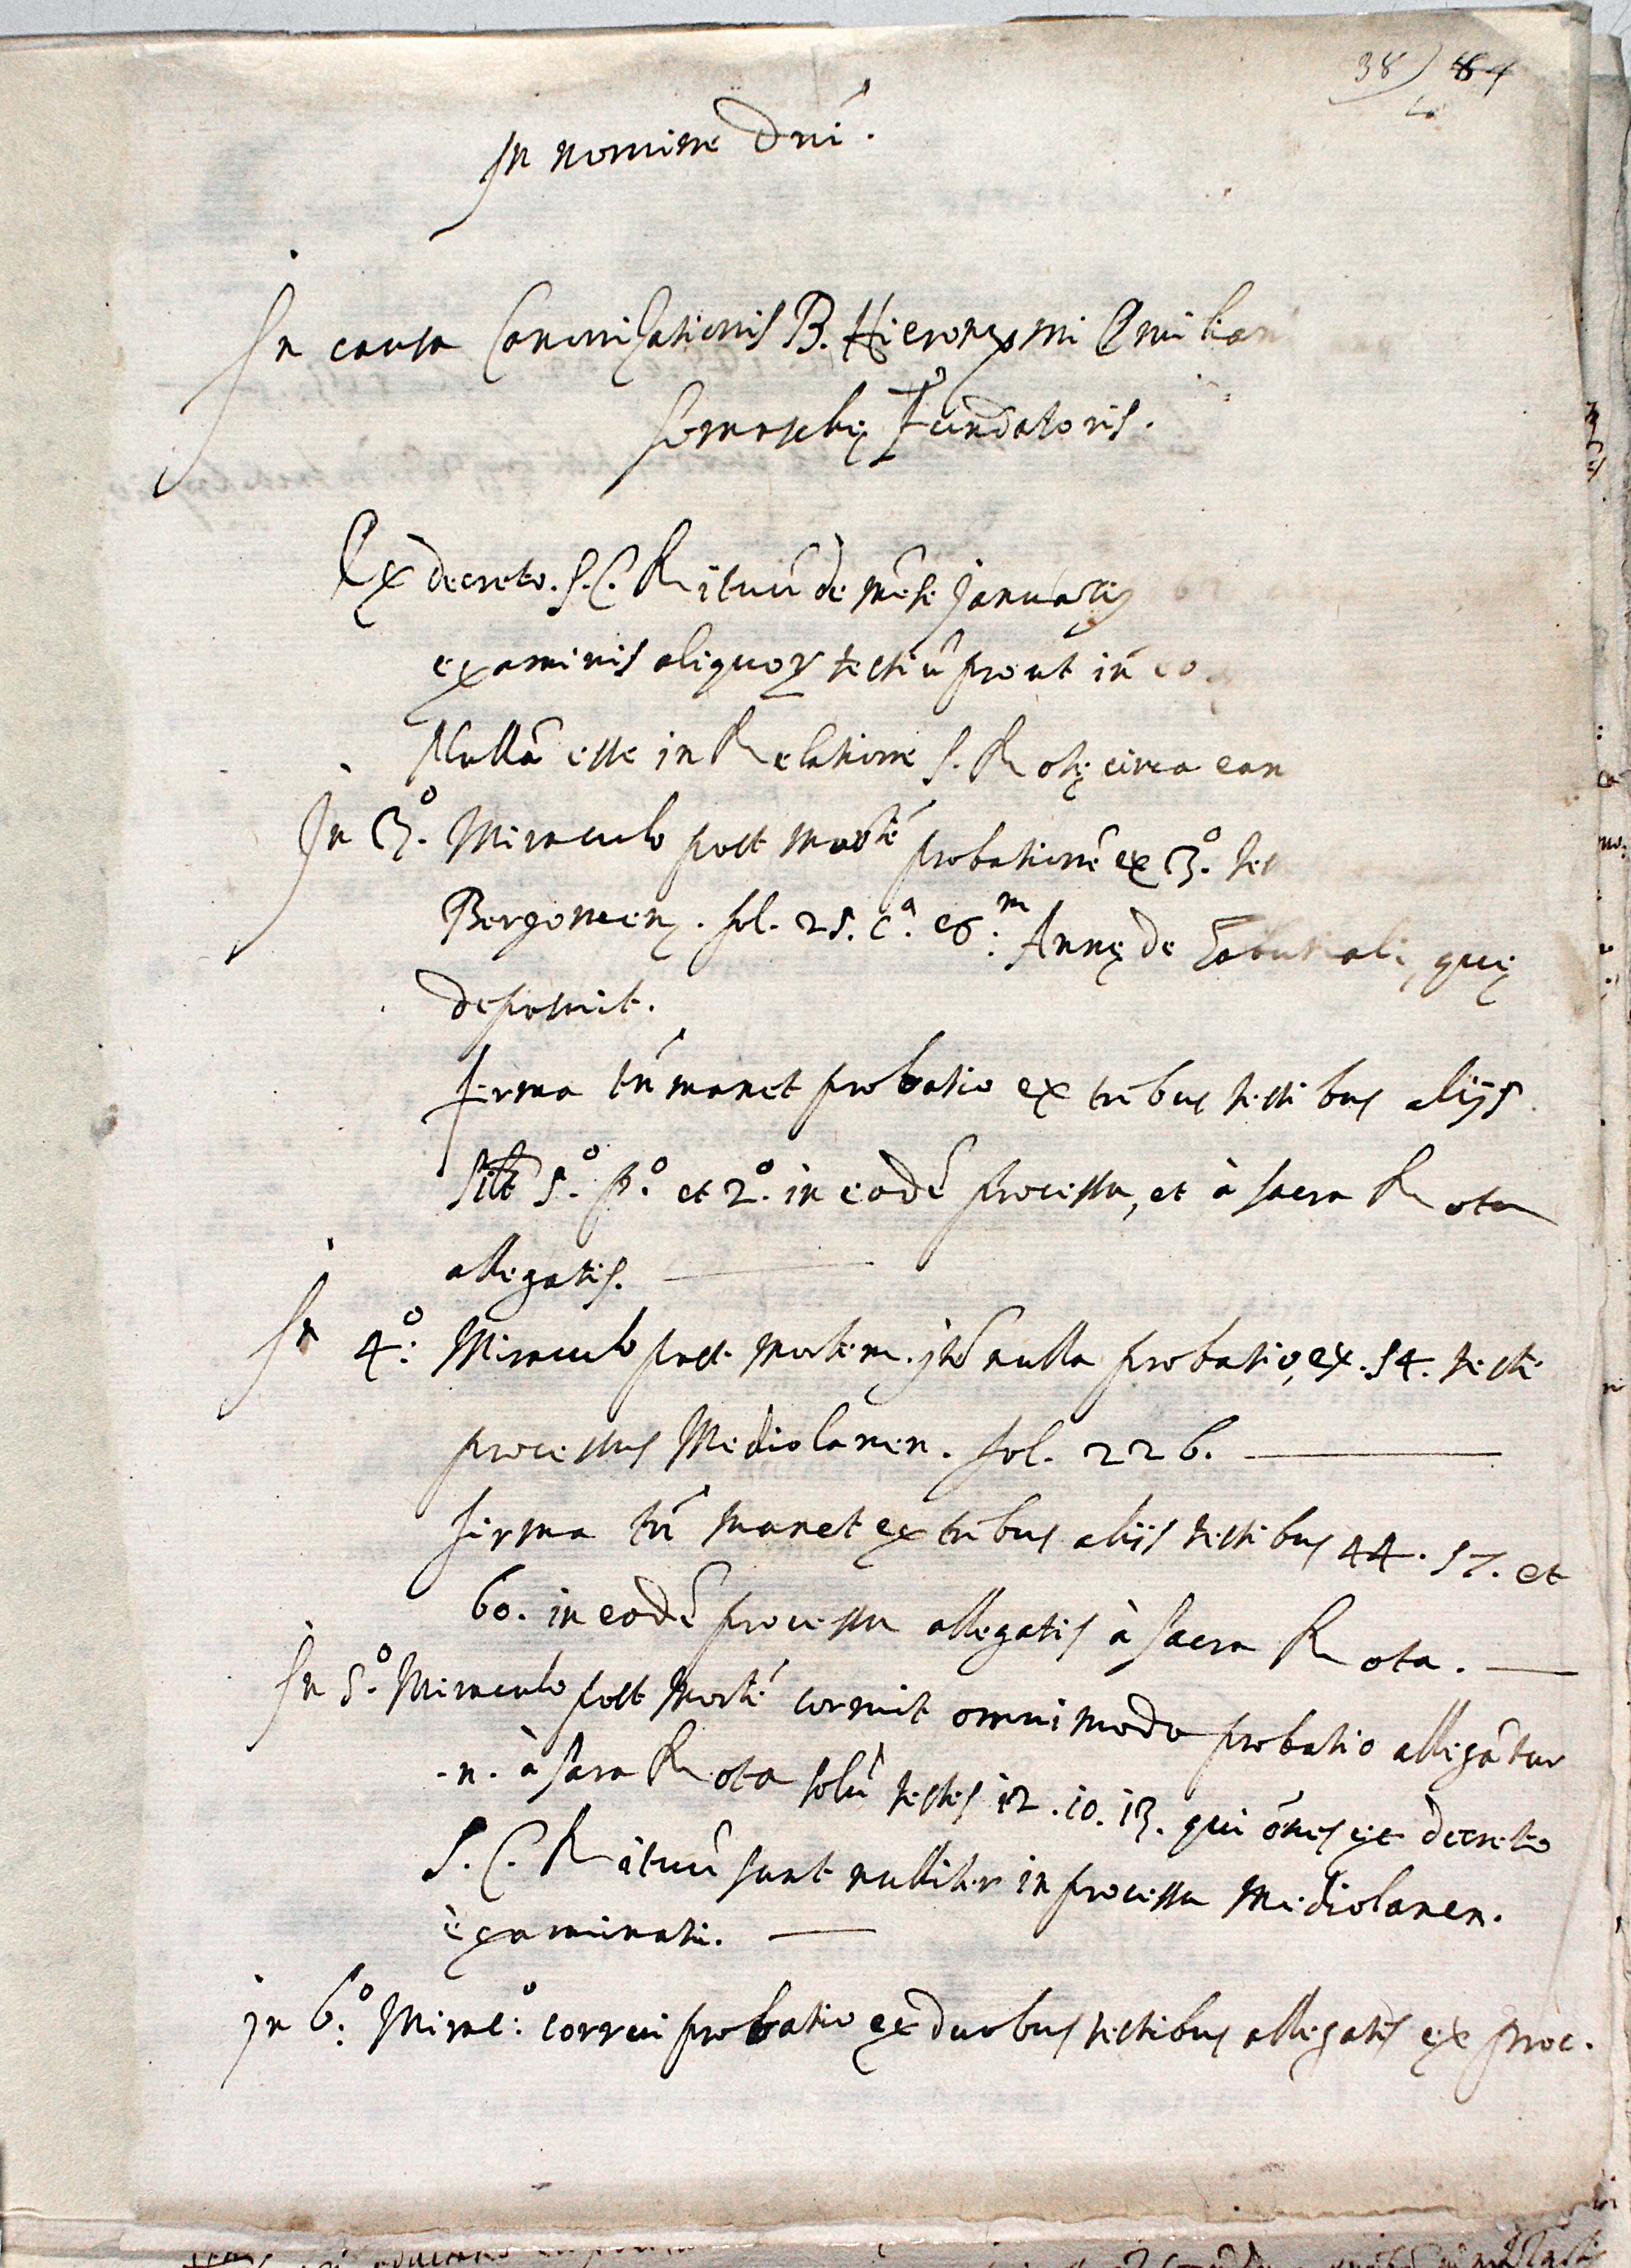 38) 84
In nomine Dnī.
In causa Canonizationis B. Hieronymi Emiliani
Somaschę Fundatoris.
Ex decreto. S. C. Rituū de mēse Januarij
examinis aliquoꝝ testiū prout in eo
Nullā esse in Relatione S. Rotę circa ean
In 3.º Miraculo post mortē probationē ex 3.º tes
Bergomen. fol. 25. Annę de quę
deposuit.
firma tn̄ manet probatio ex tribus testibus alijs
5.º p.º et 2.º in eodē processu, et à sacra Rota
allegatis.
In 4.º Miraculo post mortem. nulla probatio, ex. 54. teste
processus Mediolanen. fol. 226.
firma tn̄ manet ex tribus alijs testibus 44. 57. et
60. in eodē processu allegatis à sacra Rota.
In 5.º Miraculo post mortē corruit omnimodo probatio allegātur
.n. à sacra Rota solū testes 12. 10. 13. qui ōnes ex decreto
S. C. Rituū sunt nulliter in processu Mediolanen.
examinati.
in 6.º Mirac.º corruit probatio ex duobus testibus allegatis ex proc.